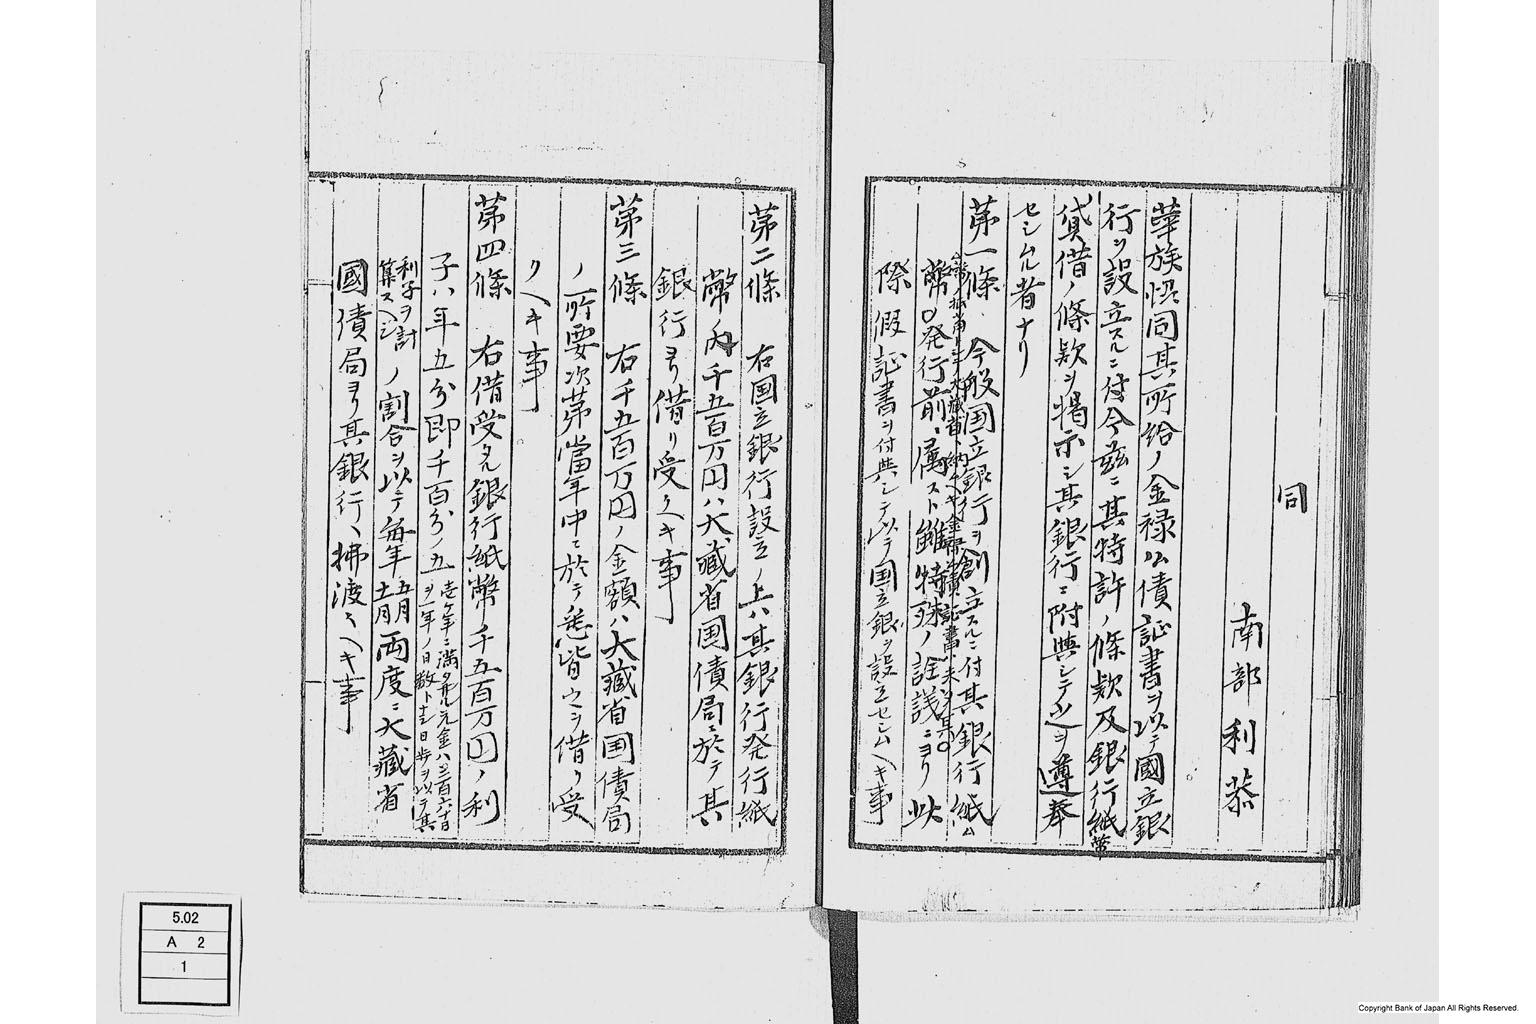 同
南部利恭
華族協同其所給ノ金禄公債証書ヲ以テ國立銀
行ヲ設立スルニ付今茲ニ其特許ノ條款及銀行紙幣
貸借ノ條款ヲ掲示シ其銀行ニ附與シテ之ヲ遵奉
セシムル者ナリ
第一條 今般国立銀行ヲ創立スルニ付其銀行紙
幣発行前ニ属スト雖特殊ノ詮議ニヨリ此
際假証書ヲ付與シテ以テ国立銀ヲ設立セシムヘキ事
第二條 右国立銀行設立ノ上ハ其銀行発行紙
幣ノ内千五百万円ハ大藏省国債局ニ於テ其
銀行ヨリ借リ受クヘキ事
第三條 右千五百万円ノ金額ハ大藏省国債局
ノ所要次第當年中ニ於テ悉皆之ヲ借リ受
クヘキ事
第四條 右借受タル銀行紙幣千五百万円ノ利
子ハ年五分即千百分ノ五壱ケ年ニ満タサル元金ハ三百六十五日
ヲ一年ノ日数ト定日歩ヲ以テ其
利子ヲ計
算スヘシノ割合ヲ以テ毎年五月
十一月両度ニ大藏省
國債局ヨリ其銀行ヘ拂渡スヘキ事
5.02
A 2
1
Copyright Bank of Japan All Rights Reserved.